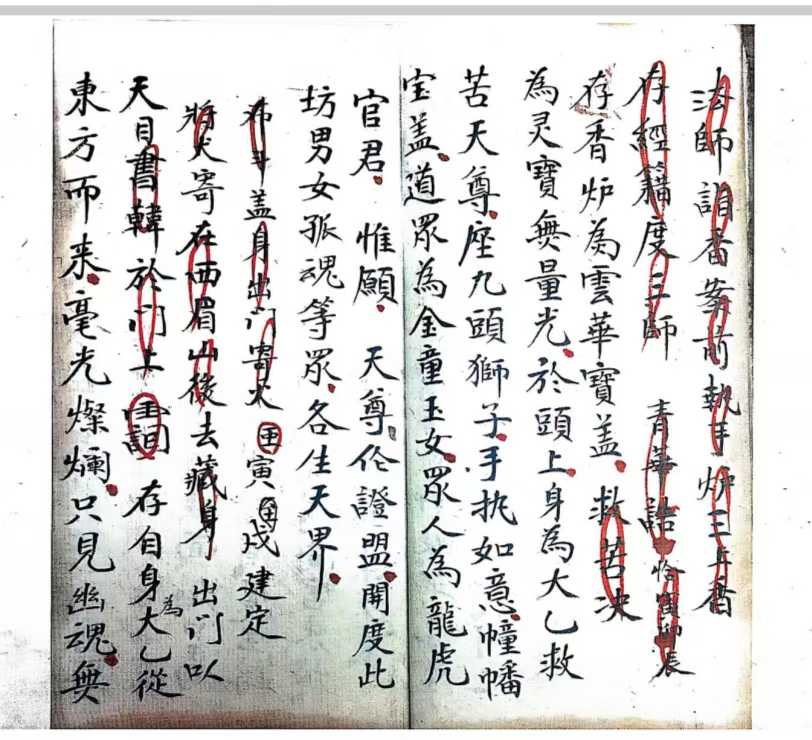 法師詣香案前執手炉三上香
存經籍度三師 青華誥
存香炉為雲華寶盖救苦决
為灵寶無量光於頭上身為大乙救
苦天尊座九頭獅子手执如意幢幡
宝盖道眾為金童玉女眾人為龍虎
官君惟願天尊證盟開度此
坊男女孤魂等眾各生天界
斗盖身出门寄犬寅戌建定
將犬寄在西眉山後去藏身出门以
天目書於门上存自身為大乙從
東方而来毫光燦爛只見幽魂無